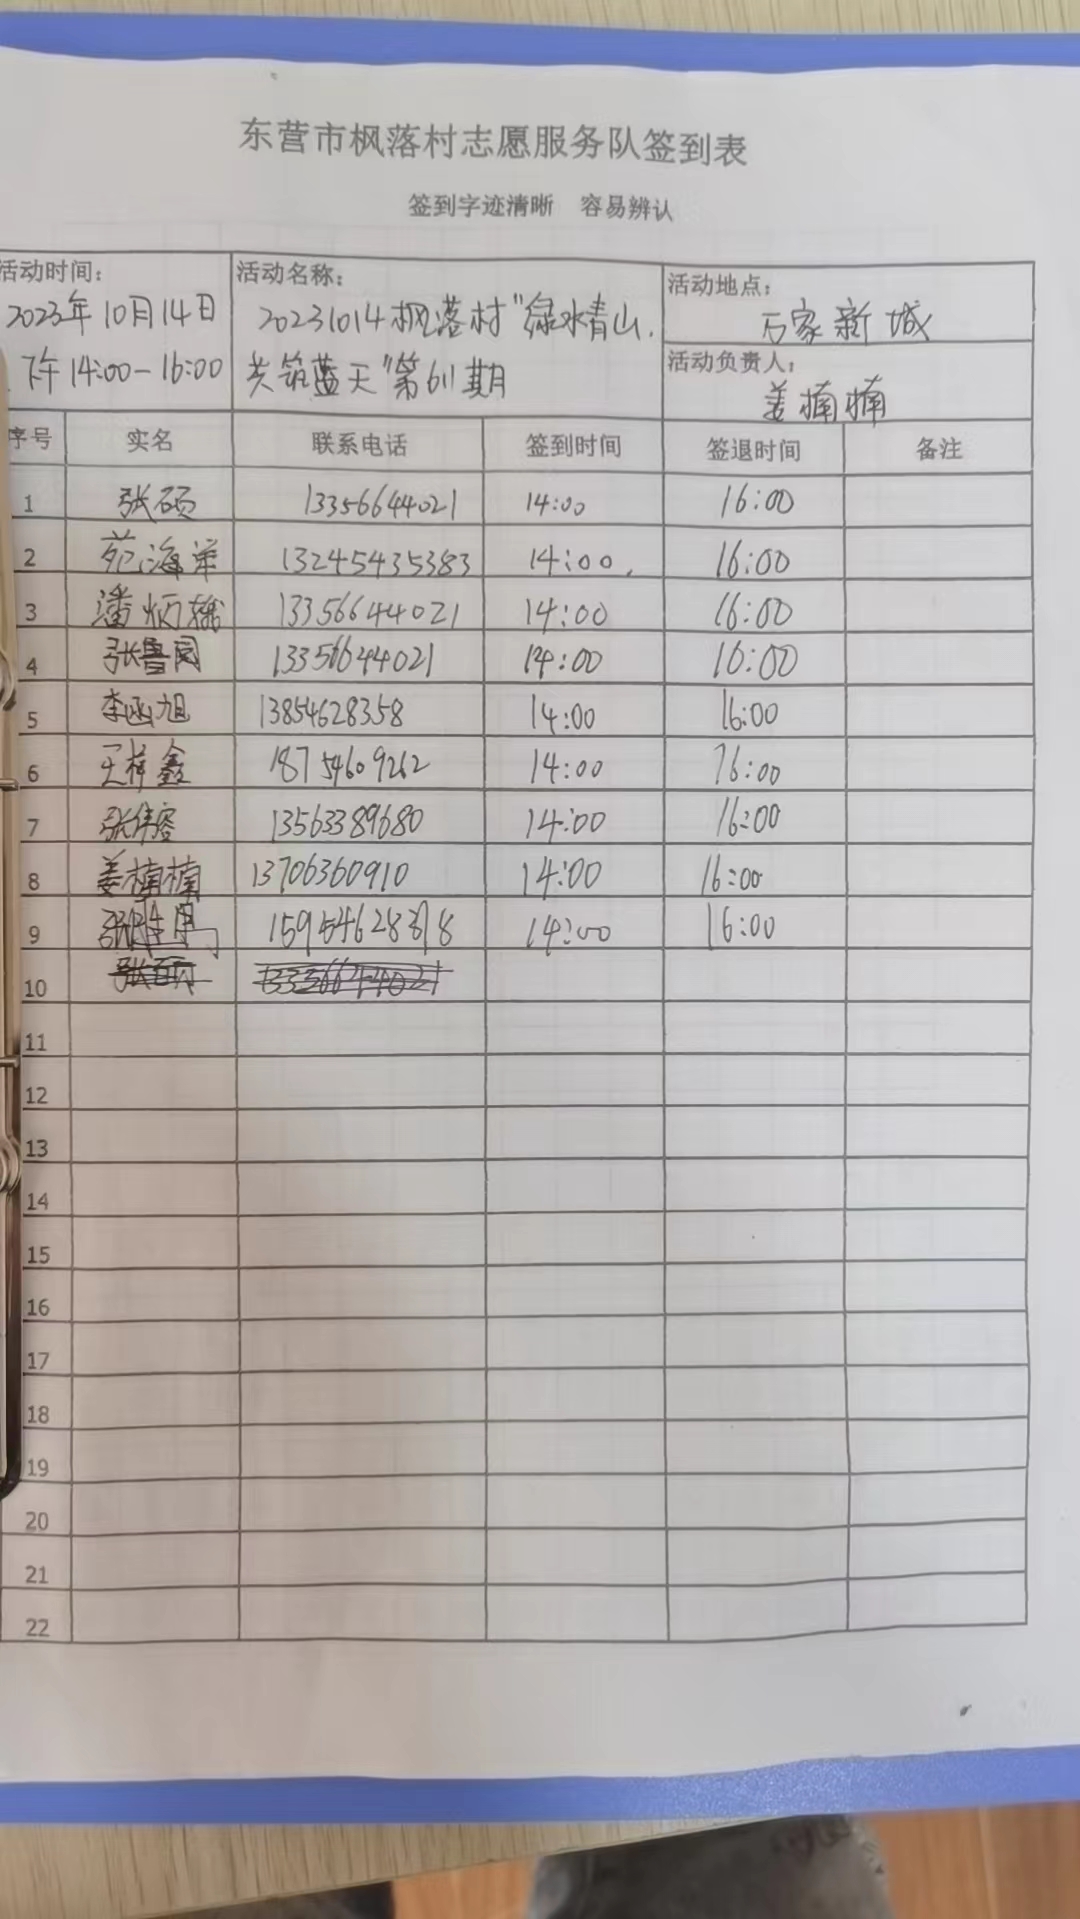 东营市枫落村志愿服务队签到表
签到字迹清晰 容易辨认
活动时间：
2023年10月14日
下午14:00-16:00
活动名称：
20231014枫落村"绿水青山.
共筑蓝天"第611期
活动地点：
万家新城
活动负责人：
姜楠楠
序号 实名 联系电话 签到时间 签退时间 备注
1 张硕 13356644021 14:00 16:00
2 苑海洋 13245435383 14:00 16:00
3 潘炳 13356644021 14:00 16:00
4 张鲁闽 13356644021 14:00 16:00
5 李函旭 13854628358 14:00 16:00
6 王梓鑫 18754609262 14:00 16:00
7 张伟容 13563389680 14:00 16:00
8 姜楠楠 13706360910 14:00 16:00
9 张 14:00 16:00
10 13356644021
11
12
13
14
15
16
17
18
19
20
21
22